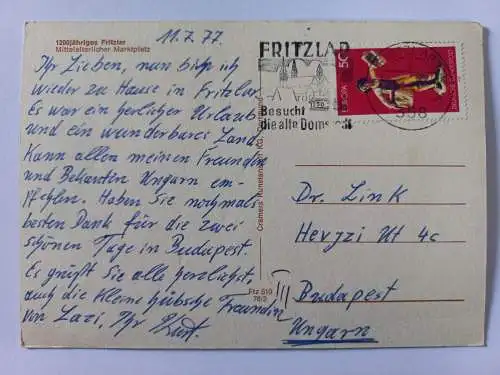 1200jähriges Fritzlar
Mittelalterlicher Marktplatz
11.7.77.
Ihr Lieben, nun bin ich
wieder zu Hause in Fritzlar
Es war ein herlicher Urlaub
und ein wunderbares Land.
Kann allen meinen Freunden
und Bekanten Ungarn em-
pfehlen. Haben Sie nochmals
besten Dank für die zwei
schönen Tage in Budapest.
Es grüßt Sie alle herzlichst,
auch die kleine hübsche Freundin
von Lazi, Ihr Kurt.
Cramers Kunstanstalt KG,
Ftz 519
76/2
FRITZLAR
Besucht
die alte Domstadt
50
EUROPA
DEUTSCHE BUNDESPOST
358
Dr. Link
Hevjzi Ut 4c
III
Budapest
Ungarn